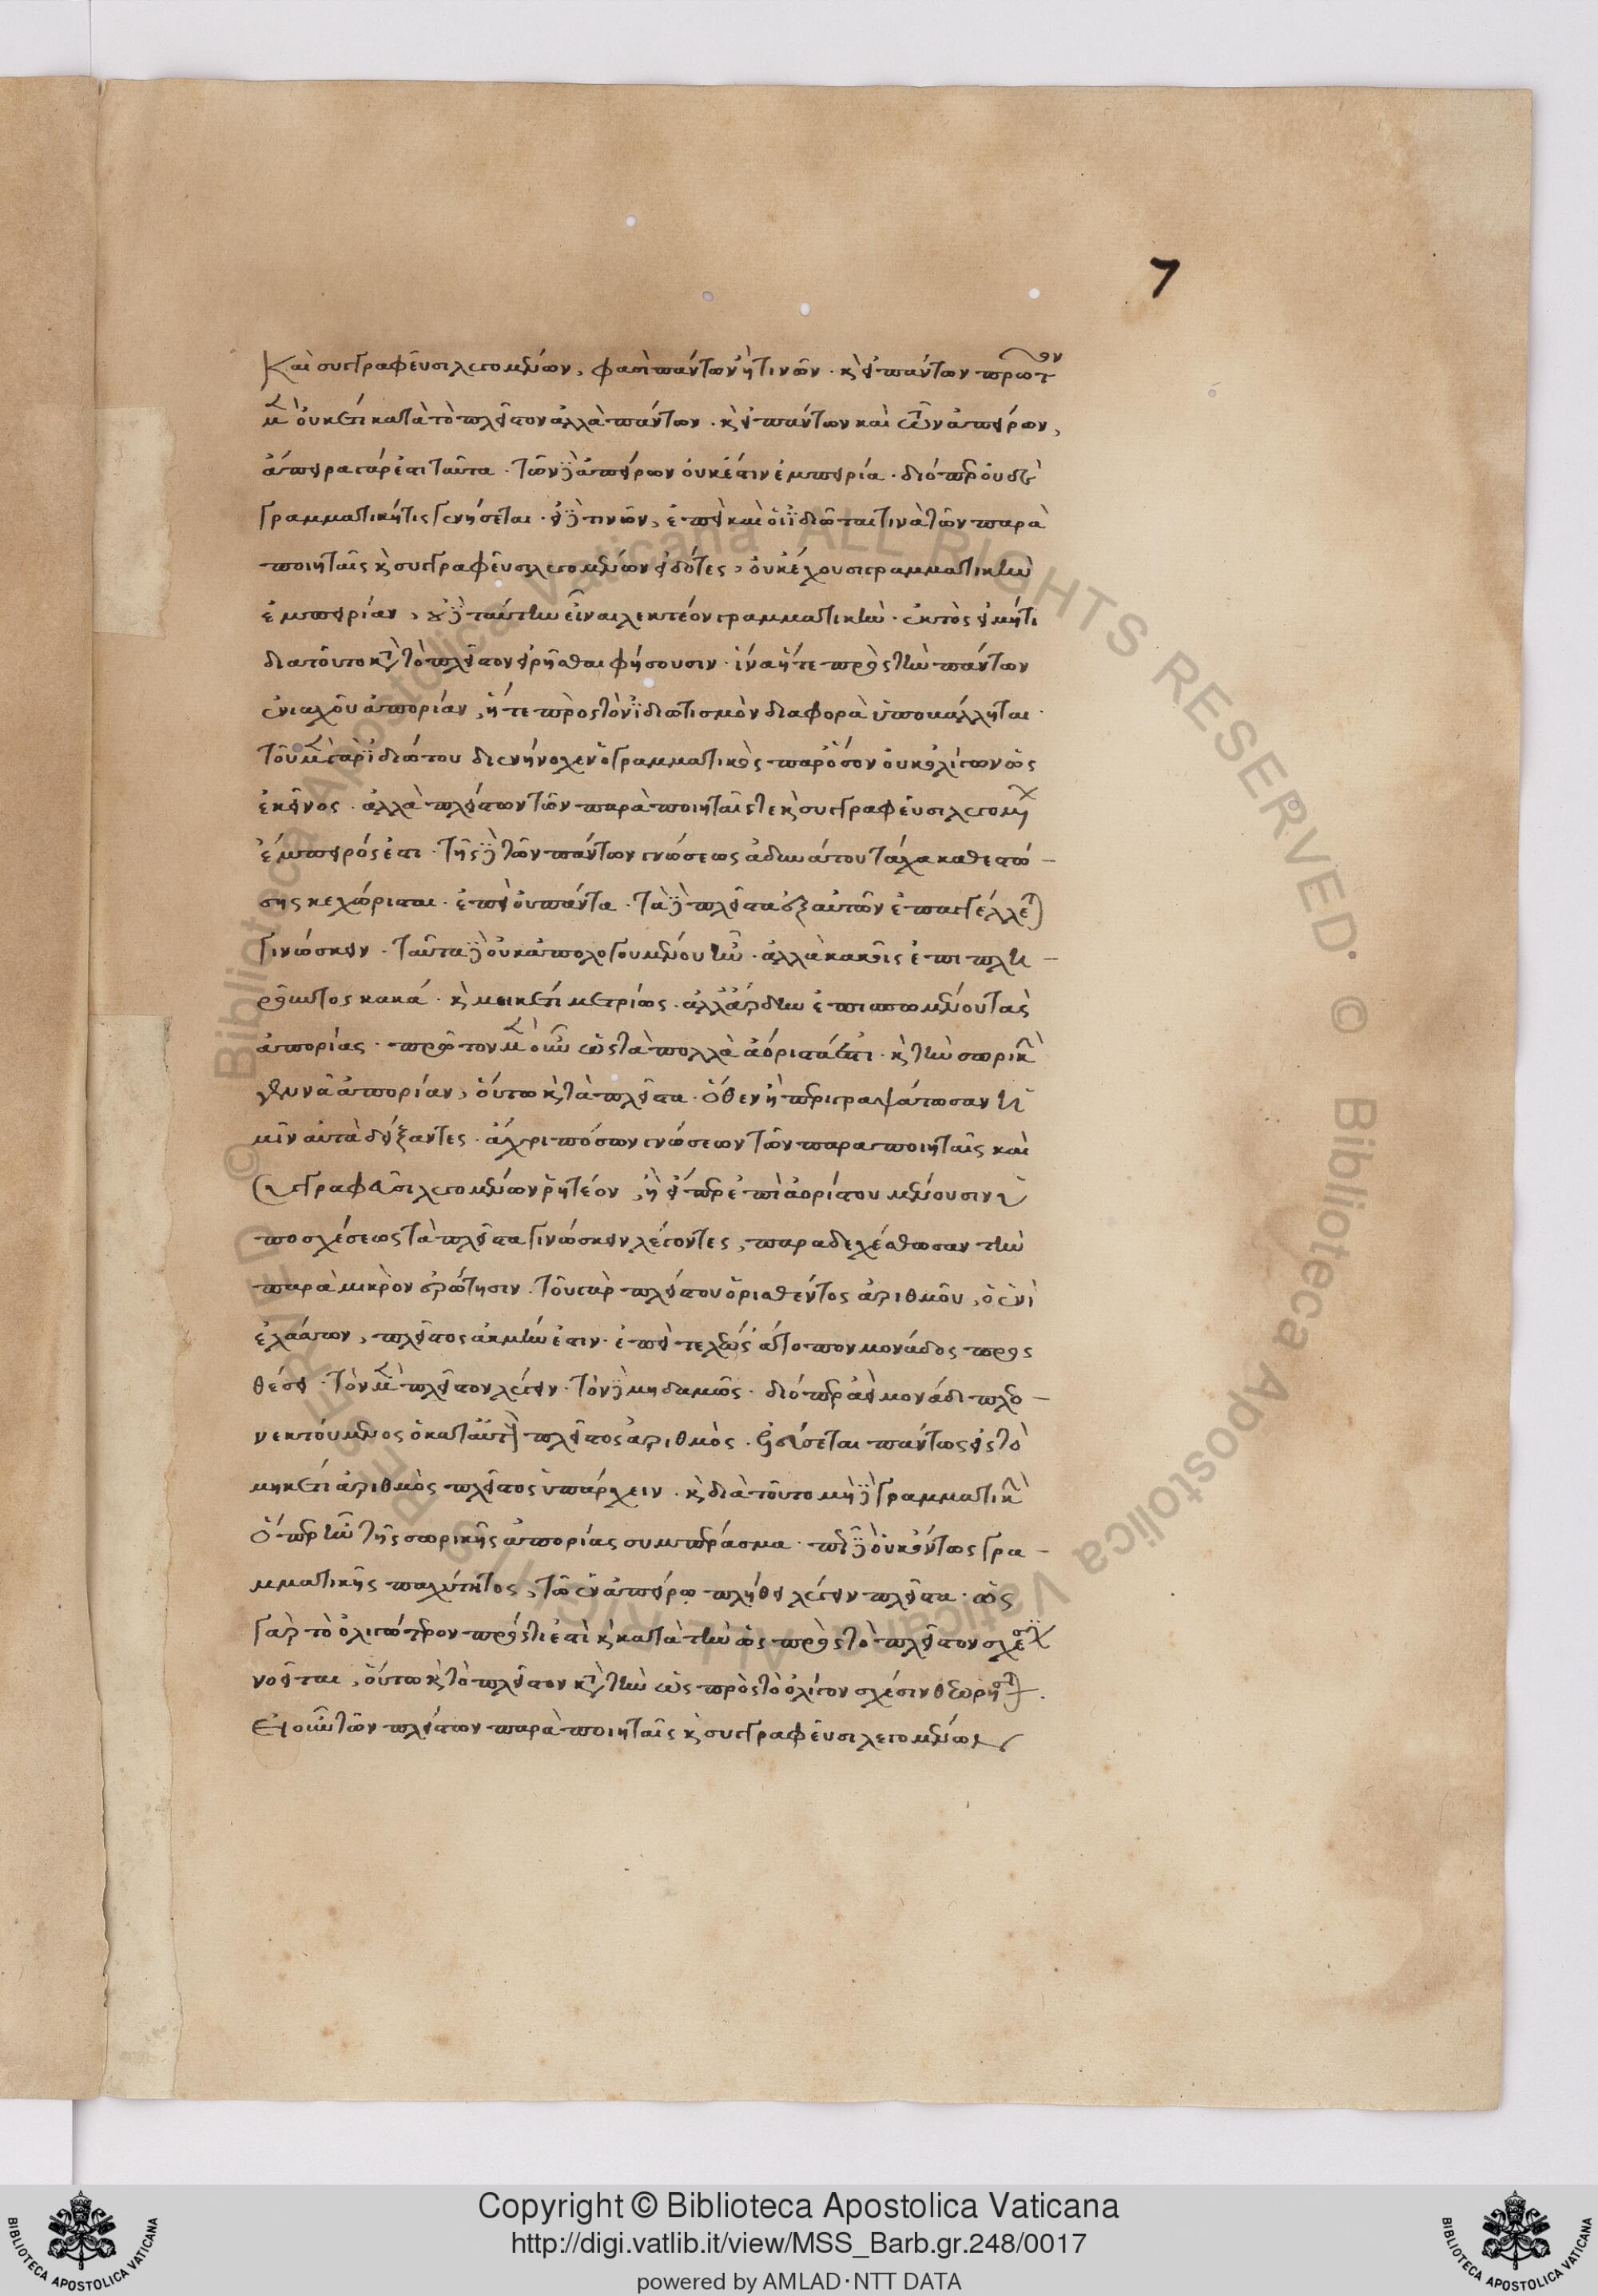 7
Καὶ συγγραφεῦσι λεγομένων, φασὶ πάντων ἢ τινῶν. καὶ εἰ πάντων πρῶτον
μὲν οὐκέτι κατὰ τὸ πλεῖστον ἀλλὰ πάντων. καὶ εἰ πάντων καὶ τῶν ἀπείρων,
ἄπειρα γάρ ἐστι ταῦτα. τῶν δὲ ἀπείρων οὐκ ἔστιν ἐμπειρία. διόπερ οὐδὲ
γραμματική τις γενήσεται. εἰ δὲ τινῶν, ἐπεὶ καὶ οἱ ἰδιῶται τινὰ τῶν παρὰ
ποιηταῖς καὶ συγγραφεῦσι λεγομένων εἰδότες, οὐκ ἔχουσι γραμματικὴν
ἐμπειρίαν, οὐδὲ ταύτην εἶναι λεκτέον γραμματικὴν. ἐκτὸς εἰ μήτι
διατοῦτο καὶ τὸ πλεῖστον εἰρῆσθαι φήσουσιν. ἵνα ἥ τε πρὸς τὴν πάντων
ἐνιαχοῦ ἀπορίαν, ἥ τε πρὸς τὸν ἰδιωτισμὸν διαφορὰ ὑποβάλληται.
τοῦ μὲν γὰρ ἰδιώτου διενήνοχεν ὁ γραμματικὸς παρόσον οὐκ ὀλίγων ὡς
ἐκεῖνος. ἀλλὰ πλείστων τῶν παρὰ ποιηταῖς τε καὶ συγγραφεῦσι λεγομένων
ἔμπειρός ἐστι. τῆς δὲ τῶν πάντων γνώσεως ἀδυνάτου τάχα καθεστώ-
σης κεχώρισται. ἐπεὶ οὐ πάντα. τὰ δὲ πλεῖστα ἐξ αὐτῶν ἐπαγγέλλεται
γινώσκειν. ταῦτα δὲ οὐκ ἀπολογουμένου ἦν. ἀλλὰ κακοῖς ἐπιπλη-
ροῦντος κακά. καὶ μηκέτι μετρίως. ἀλλ' ἄρδην ἐπισπωμένου τὰς
ἀπορίας. πρῶτον μὲν οὖν ὡς τὰ πολλὰ ἀόριστά ἐστι. καὶ τὴν σωρικὴν
γεννᾶ ἀπορίαν, οὕτω καὶ τὰ πλεῖστα. ὅθεν ἢ περιγραψάτωσαν ἡ
μῖν αὐτὰ δείξαντες. ἄχρι πόσων γνώσεων τῶν παρα ποιηταῖς καὶ
συγγραφεῦσι λεγομένων ῥητέον, ἢ εἴπερ ἐπὶ ἀορίστου μένουσιν ὑ
ποσχέσεως τὰ πλεῖστα γινώσκειν λέγοντες, παραδεχέσθωσαν τὴν
παρὰ μικρὸν ἐρώτησιν. τοῦ γὰρ πλείστου ὁρισθέντος ἀριθμοῦ, ὁ ἑνὶ
ἐλάσσων, πλεῖστος ἀκμήν ἐστιν. ἐπεὶ τελέως ἄτοπον μονάδος προς
θέσει. τὸν μὲν πλεῖστον λέγειν. τὸν δὲ μηδαμῶς. διόπερ ἀεὶ μονάδι πλεο-
νεκτούμενος ὁ κατ' αὐτοὺς πλεῖστος ἀριθμὸς. περιέσεται πάντως εἰς τὸ
μηκέτι ἀριθμὸς πλεῖστος ὑπάρχειν. καὶ διὰ τοῦτο μὴ δὲ γραμματικὴ
ὅπερ ἦν τῆς σωρικῆς ἀπορίας συμπέρασμα. πῶς δὲ οὐκ ὄντως γρα-
μματικῆς παχύτητος, τὸ ἐν ἀπείρῳ πλήθει λέγειν πλεῖστα. ὡς
γὰρ τὸ ὀλιγώτερον πρός τι ἐστὶ καὶ κατὰ τὴν ὡς πρὸς τὸ πλεῖστον σχέσιν
νοεῖται, οὕτω καὶ τὸ πλεῖστον κατὰ τὴν ὡς πρὸς τὸ ὀλίγον σχέσιν θεωρηθήσεται.
Εἰ οὖν τῶν πλείστων παρὰ ποιηταῖς καὶ συγγραφεῦσι λεγομένων
Copyright © Biblioteca Apostolica Vaticana
http://digi.vatlib.it/view/MSS_Barb.gr.248/0017
powered by AMLAD·NTT DATA